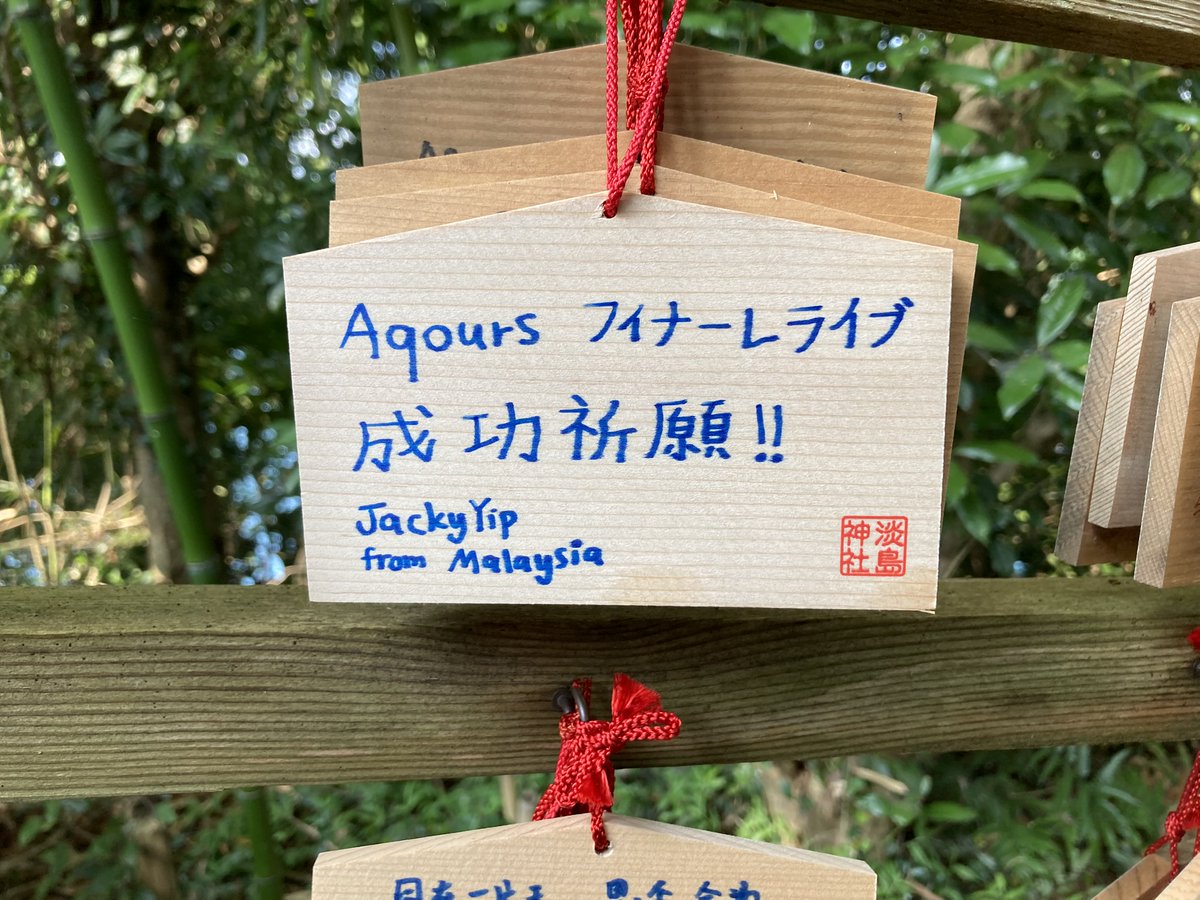 Aqours フィナーレライブ
成功祈願!!
Jacky Yip
from Malaysia
淡島
神社